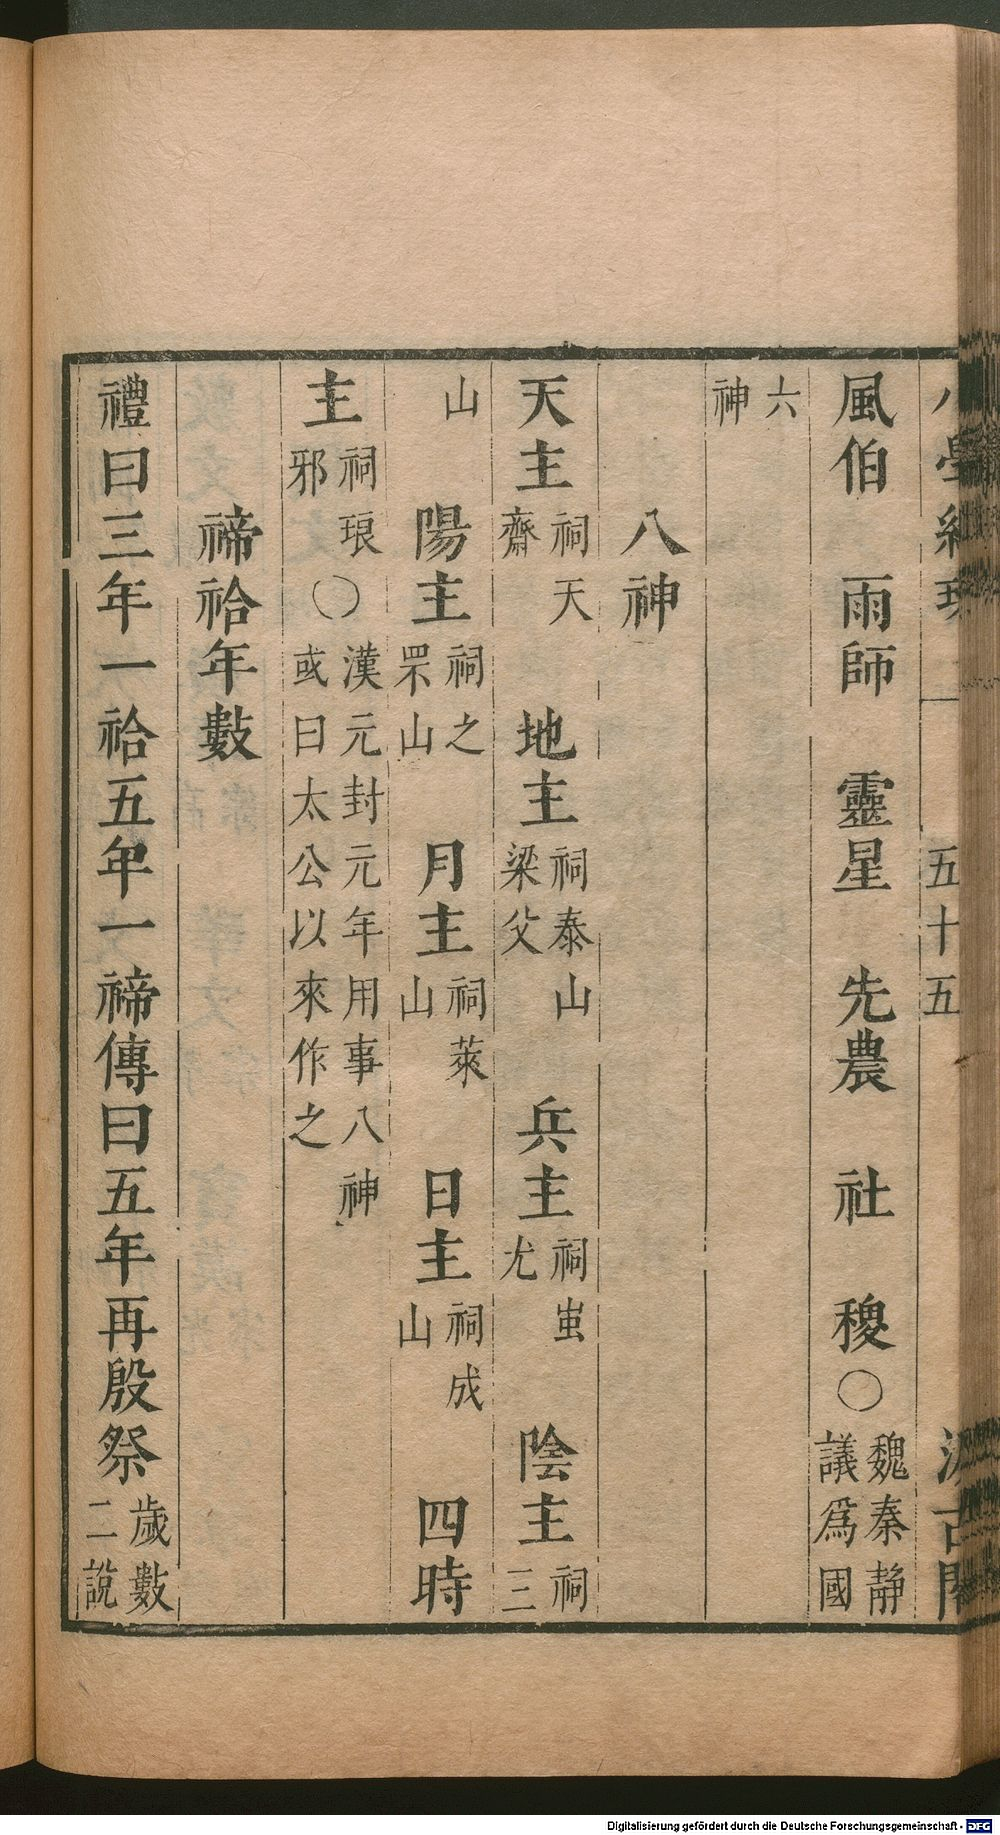 五十五
風伯　雨師　靈星　先農　社　稷○魏秦静議爲國
六神
八神
天主祠天齋　地主祠泰山梁父　兵主祠蚩尤　陰主祠三
山　陽主祠之罘山　月主祠萊山　日主祠成山　四時
主祠琅邪○漢元封元年用事八神或曰太公以來作之
禘祫年數
禮曰三年一祫五年一禘傳曰五年再殷祭歲數二說
Digitalisierung gefördert durch die Deutsche Forschungsgemeinschaft - DFG